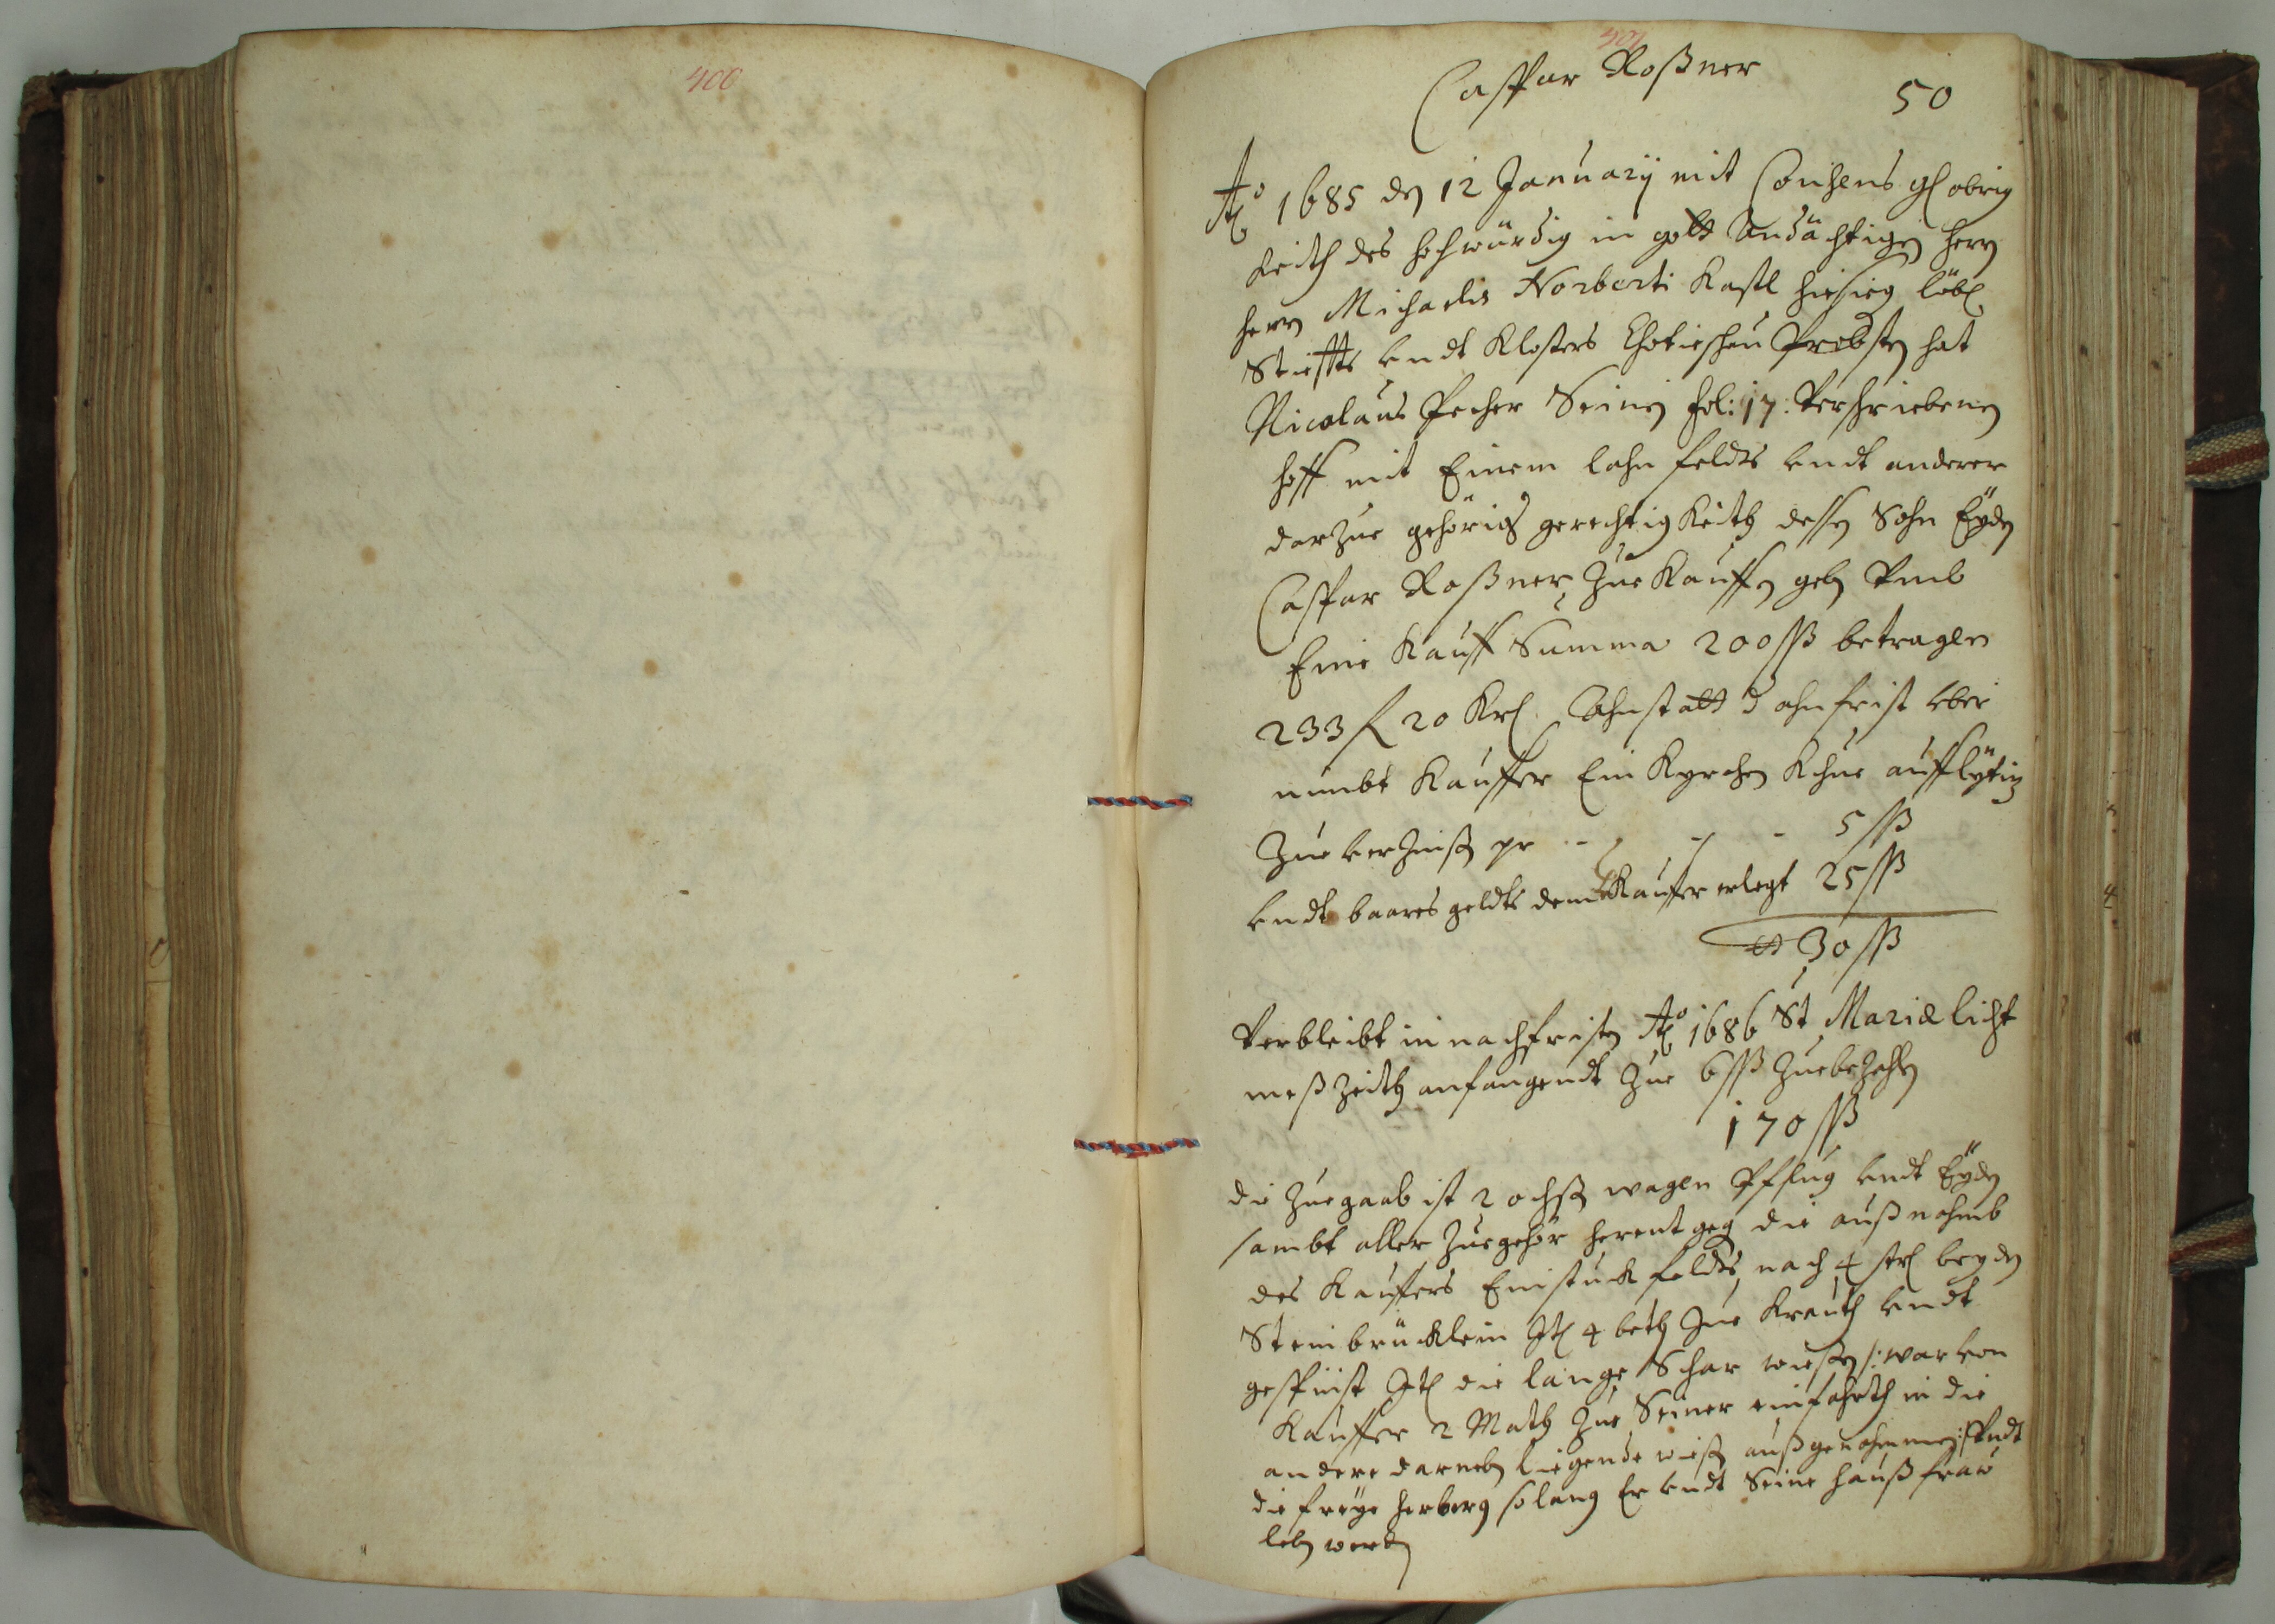 400
401
Caspar Roßner
50
Ao 1685 den 12 January mit Consens gl obrig
keith des hochwürdig in gott Andächtigen herrn
herrn Michaelis Norberti Kastl hiesieg löbl
Stiffts undt Closters Chotieschau Probsten hat
Nicolaus Pecher Seinen fol: 17: Verschriebenen
hoff mit Einem lahn feldts undt anderer
darzue gehörig gerechtigkeith dessen Sohn Eyden
Caspar Roßner Zue Kauffen geben Vmb
Eine Kauff Summa 200 ßß betragen
233 f 20 Krl Ahnstatt d ahnfrist über
nimbt Kauffer Ein Kyrchen Kuhe
Zue verzinßen pr - - - 5 ßß
undt baares geldts dem Kaufer erlegt 25 ßß
30 ßß
Verbleibt in nachfristen Ao 1686 St Mariæ licht
meß Zeith anfangendt Zue 6 ßß Zue bezahlen
170 ßß
die Zuegaab ist 2 ochsen wagen Pfflug undt Eyden
sambt aller Zuegehör herentgeg die außnahmb
des Kauffers Ein stuck feldts nach 4 strl bey den
Steinbrücklein Itl 4 beth Zue Krauth undt
gespinst Itl die lange Schar wiesen /: war von
Kauffer 2 Math Zue Seiner einfahrth in die
andere darneben liegende wieß außgenohmmen :/ Vndt
die freye herberg solang Er undt Seine haußfraw
leben werden